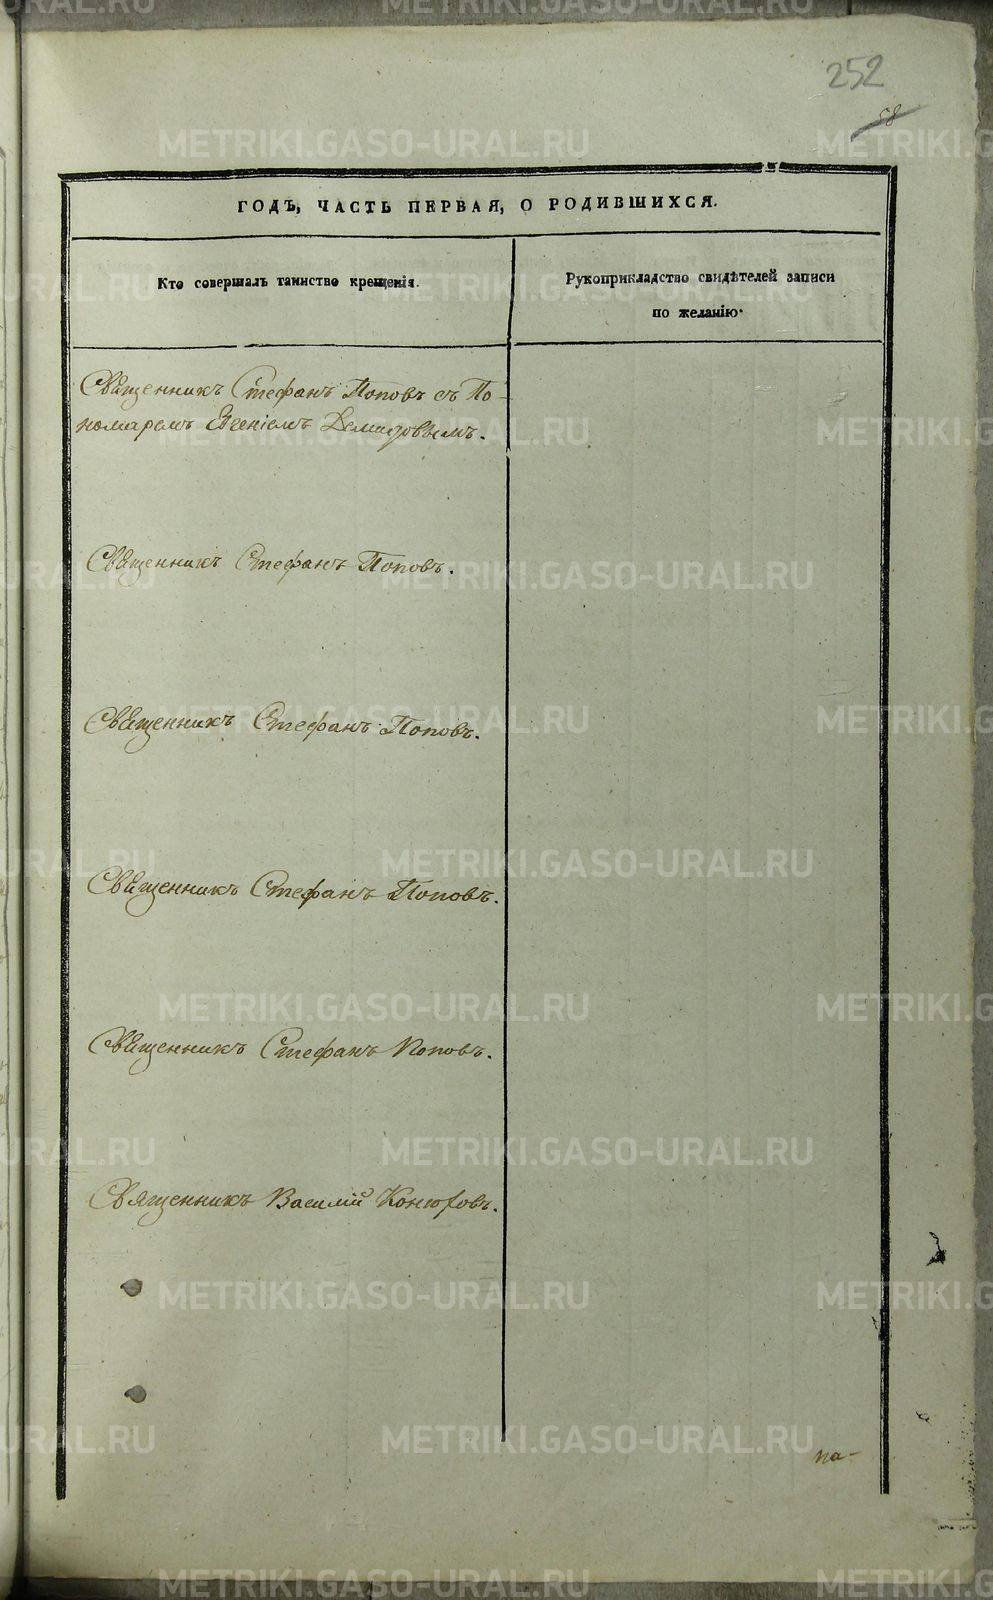 252
58
ГОДЪ, ЧАСТЬ ПЕРВАЯ, О РОДИВШИХСЯ.
Кто совершалъ таинство крещенія.
Рукоприкладство свидѣтелей записи
по желанію.
Священникъ Стефанъ Поповъ съ По-
номаремъ Евгеніемъ Демидовымъ.
Священникъ Стефанъ Поповъ.
Священникъ Стефанъ Поповъ.
Священникъ Стефанъ Поповъ.
Священникъ Стефанъ Поповъ.
Священникъ Василій Конюховъ.
па-
METRIKI.GASO-URAL.RU